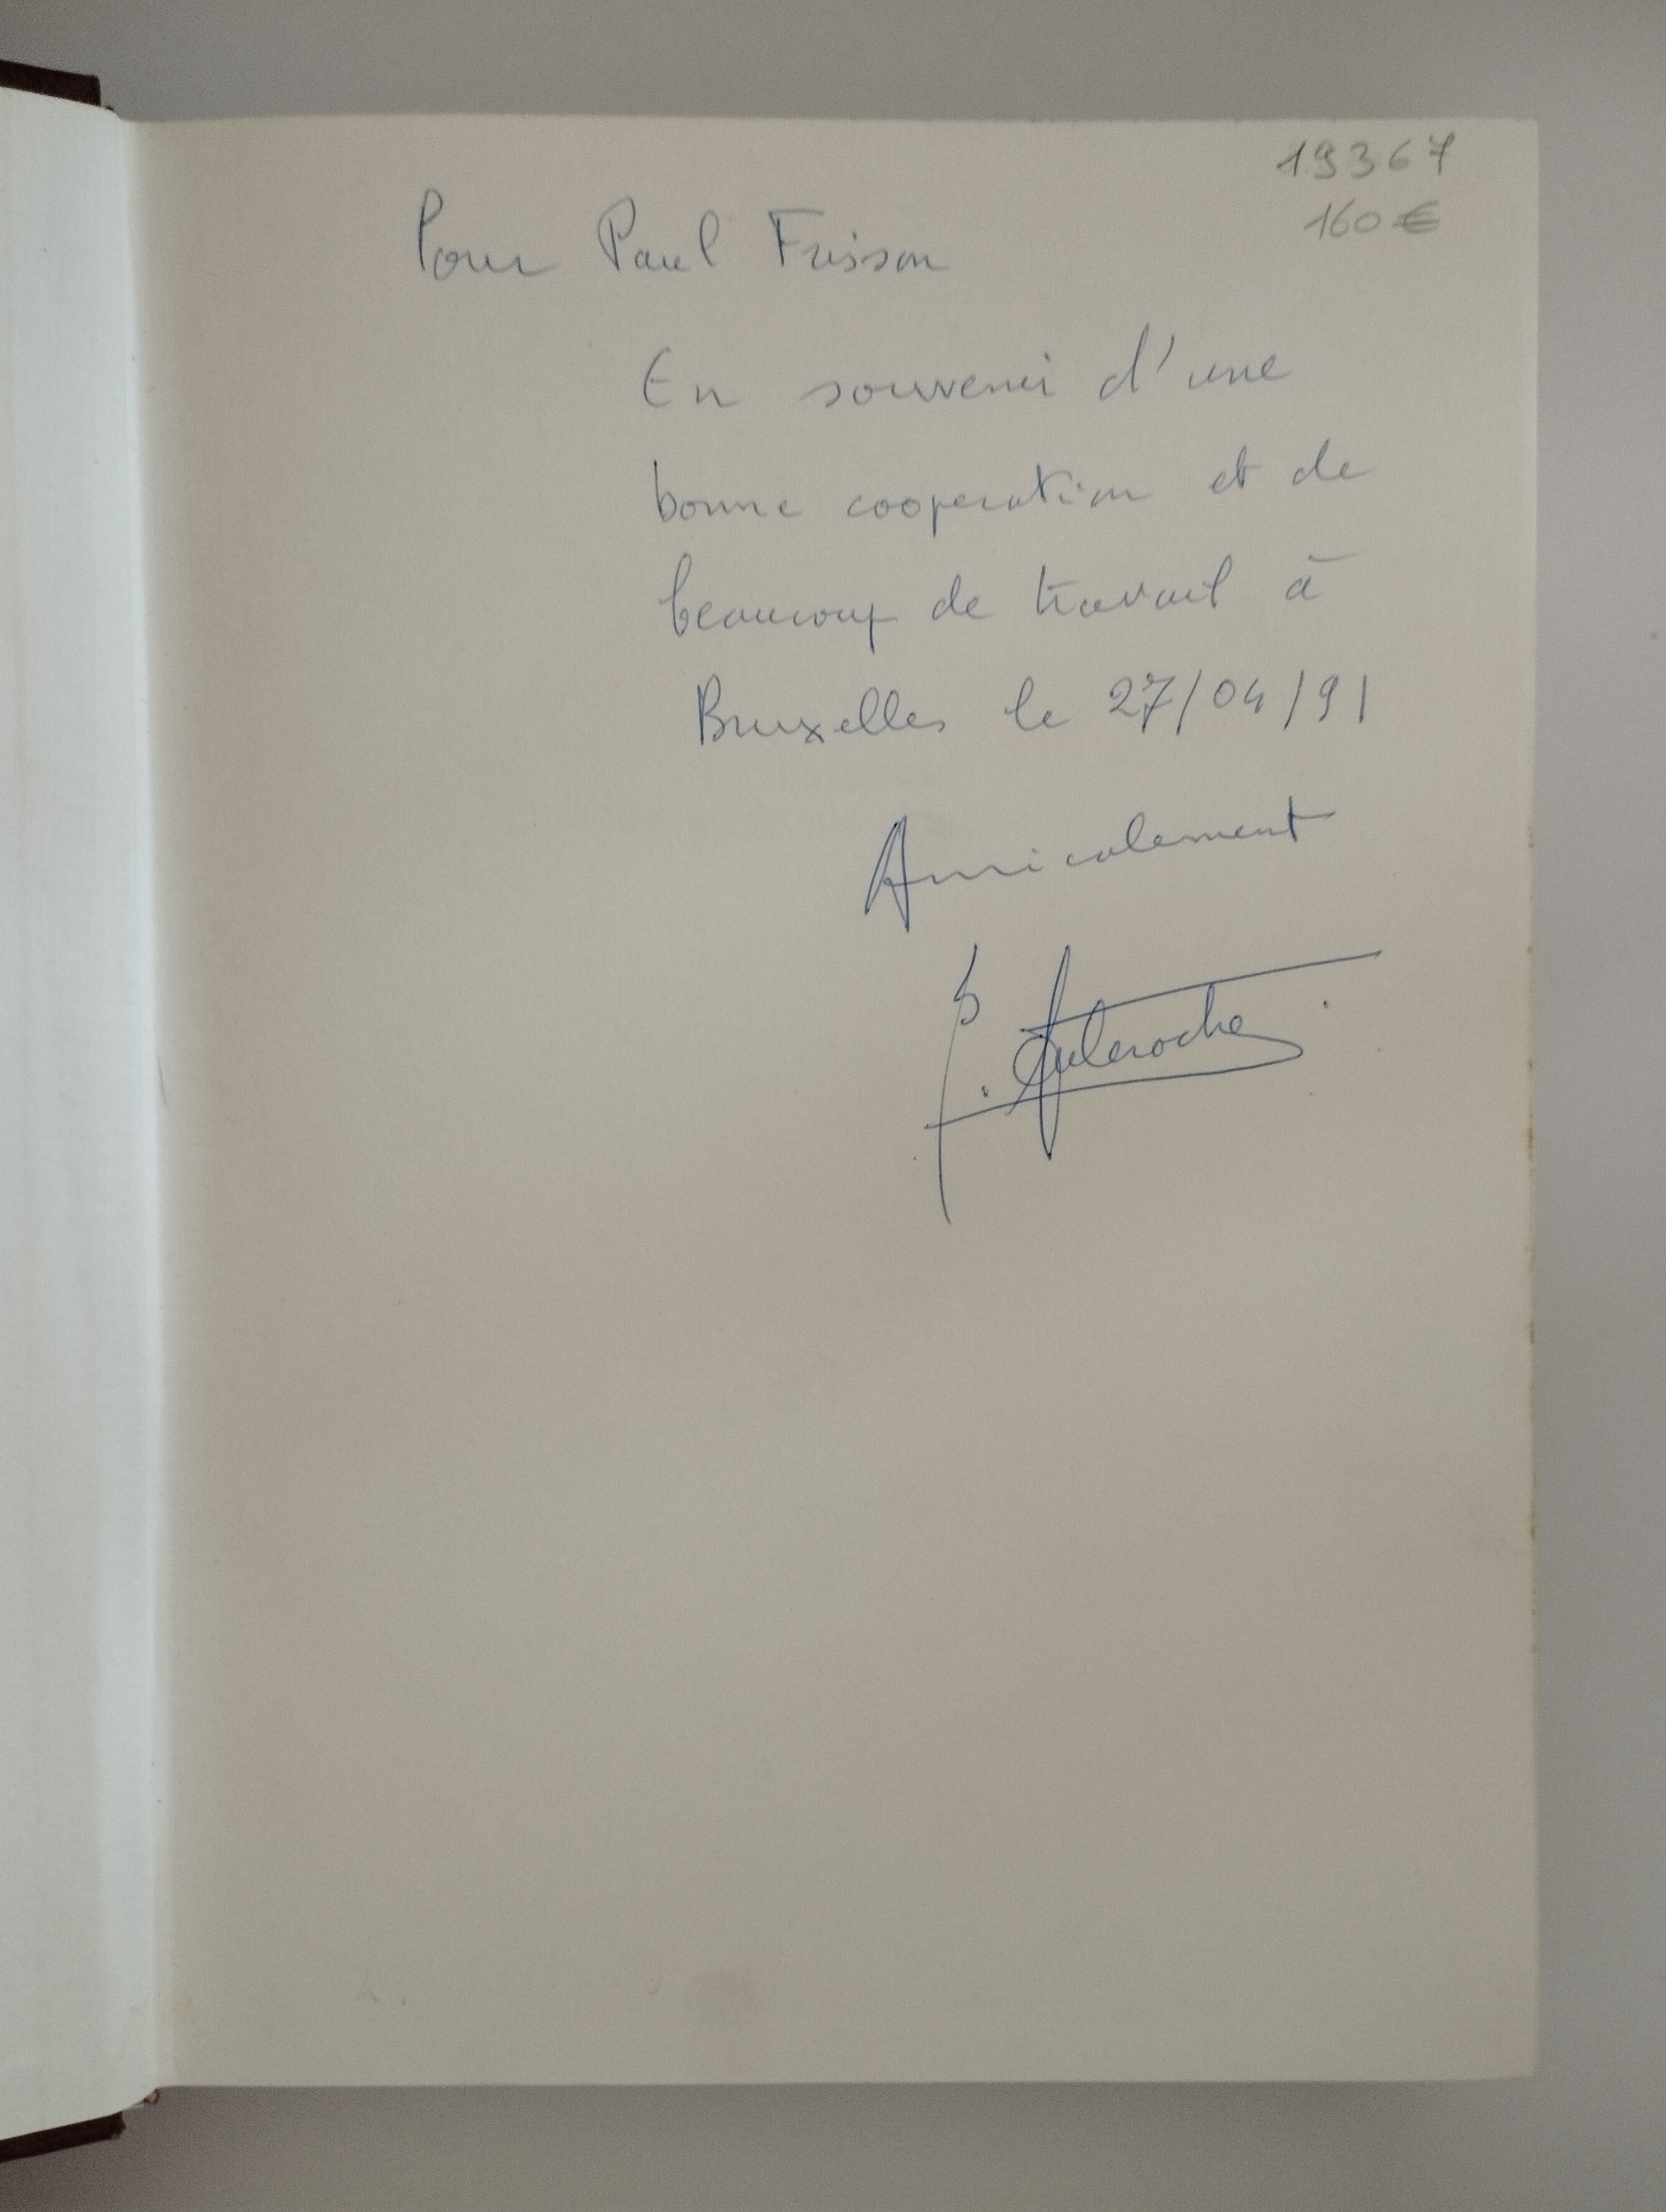 19367
160 €
Pour Paul Frisson
En souvenir d'une
bonne cooperation et de
beaucoup de travail à
Bruxelles le 27/04/91
Amicalement